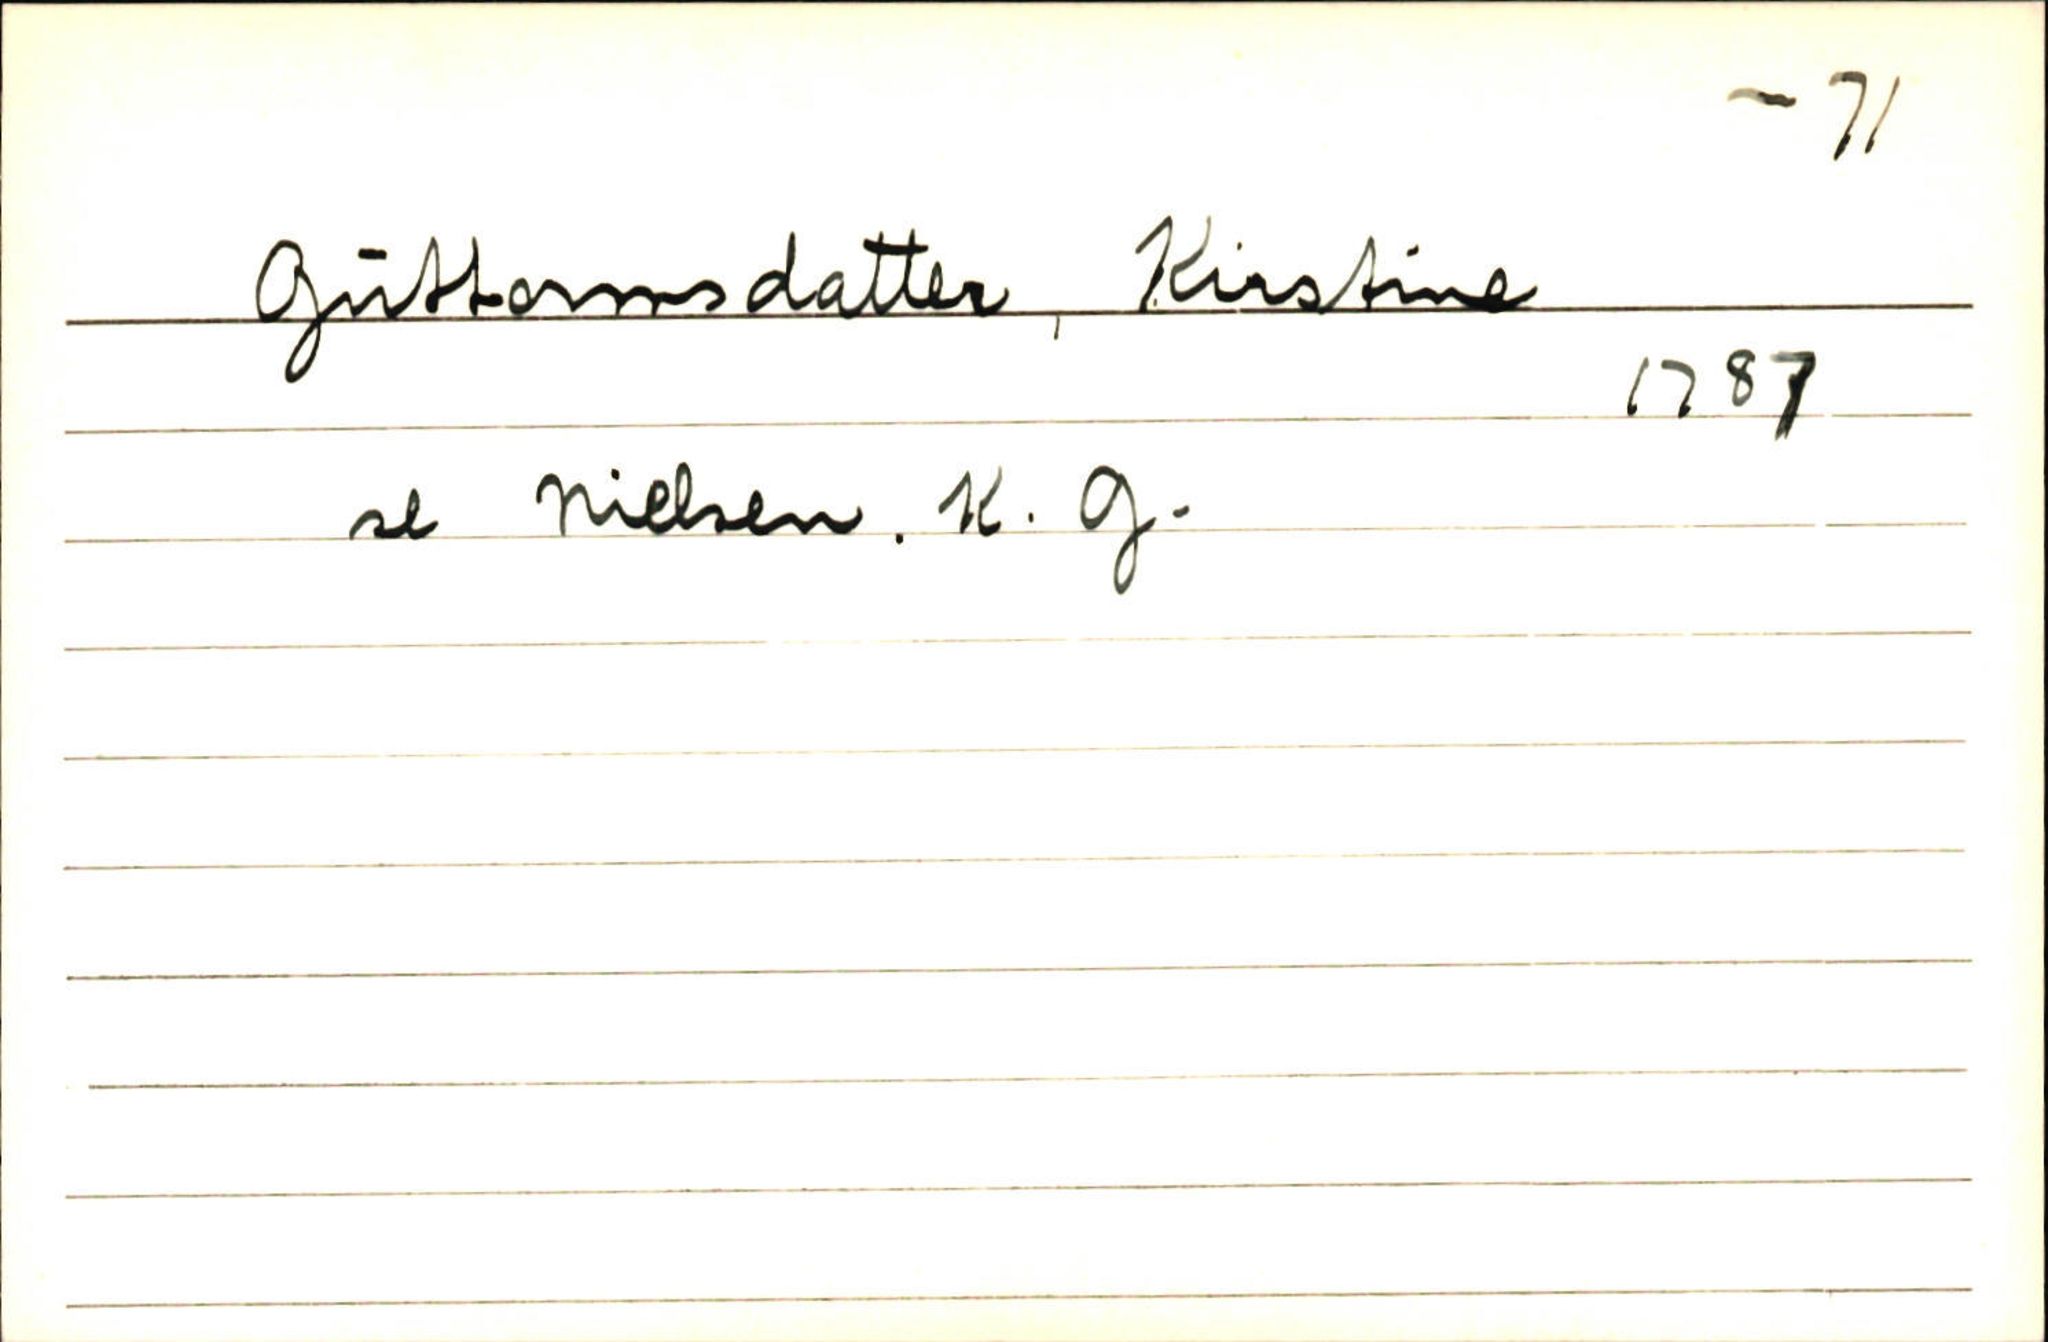 ~ 71
Guttormsdatter, Kirstine
1787
se Nielsen. K. G.